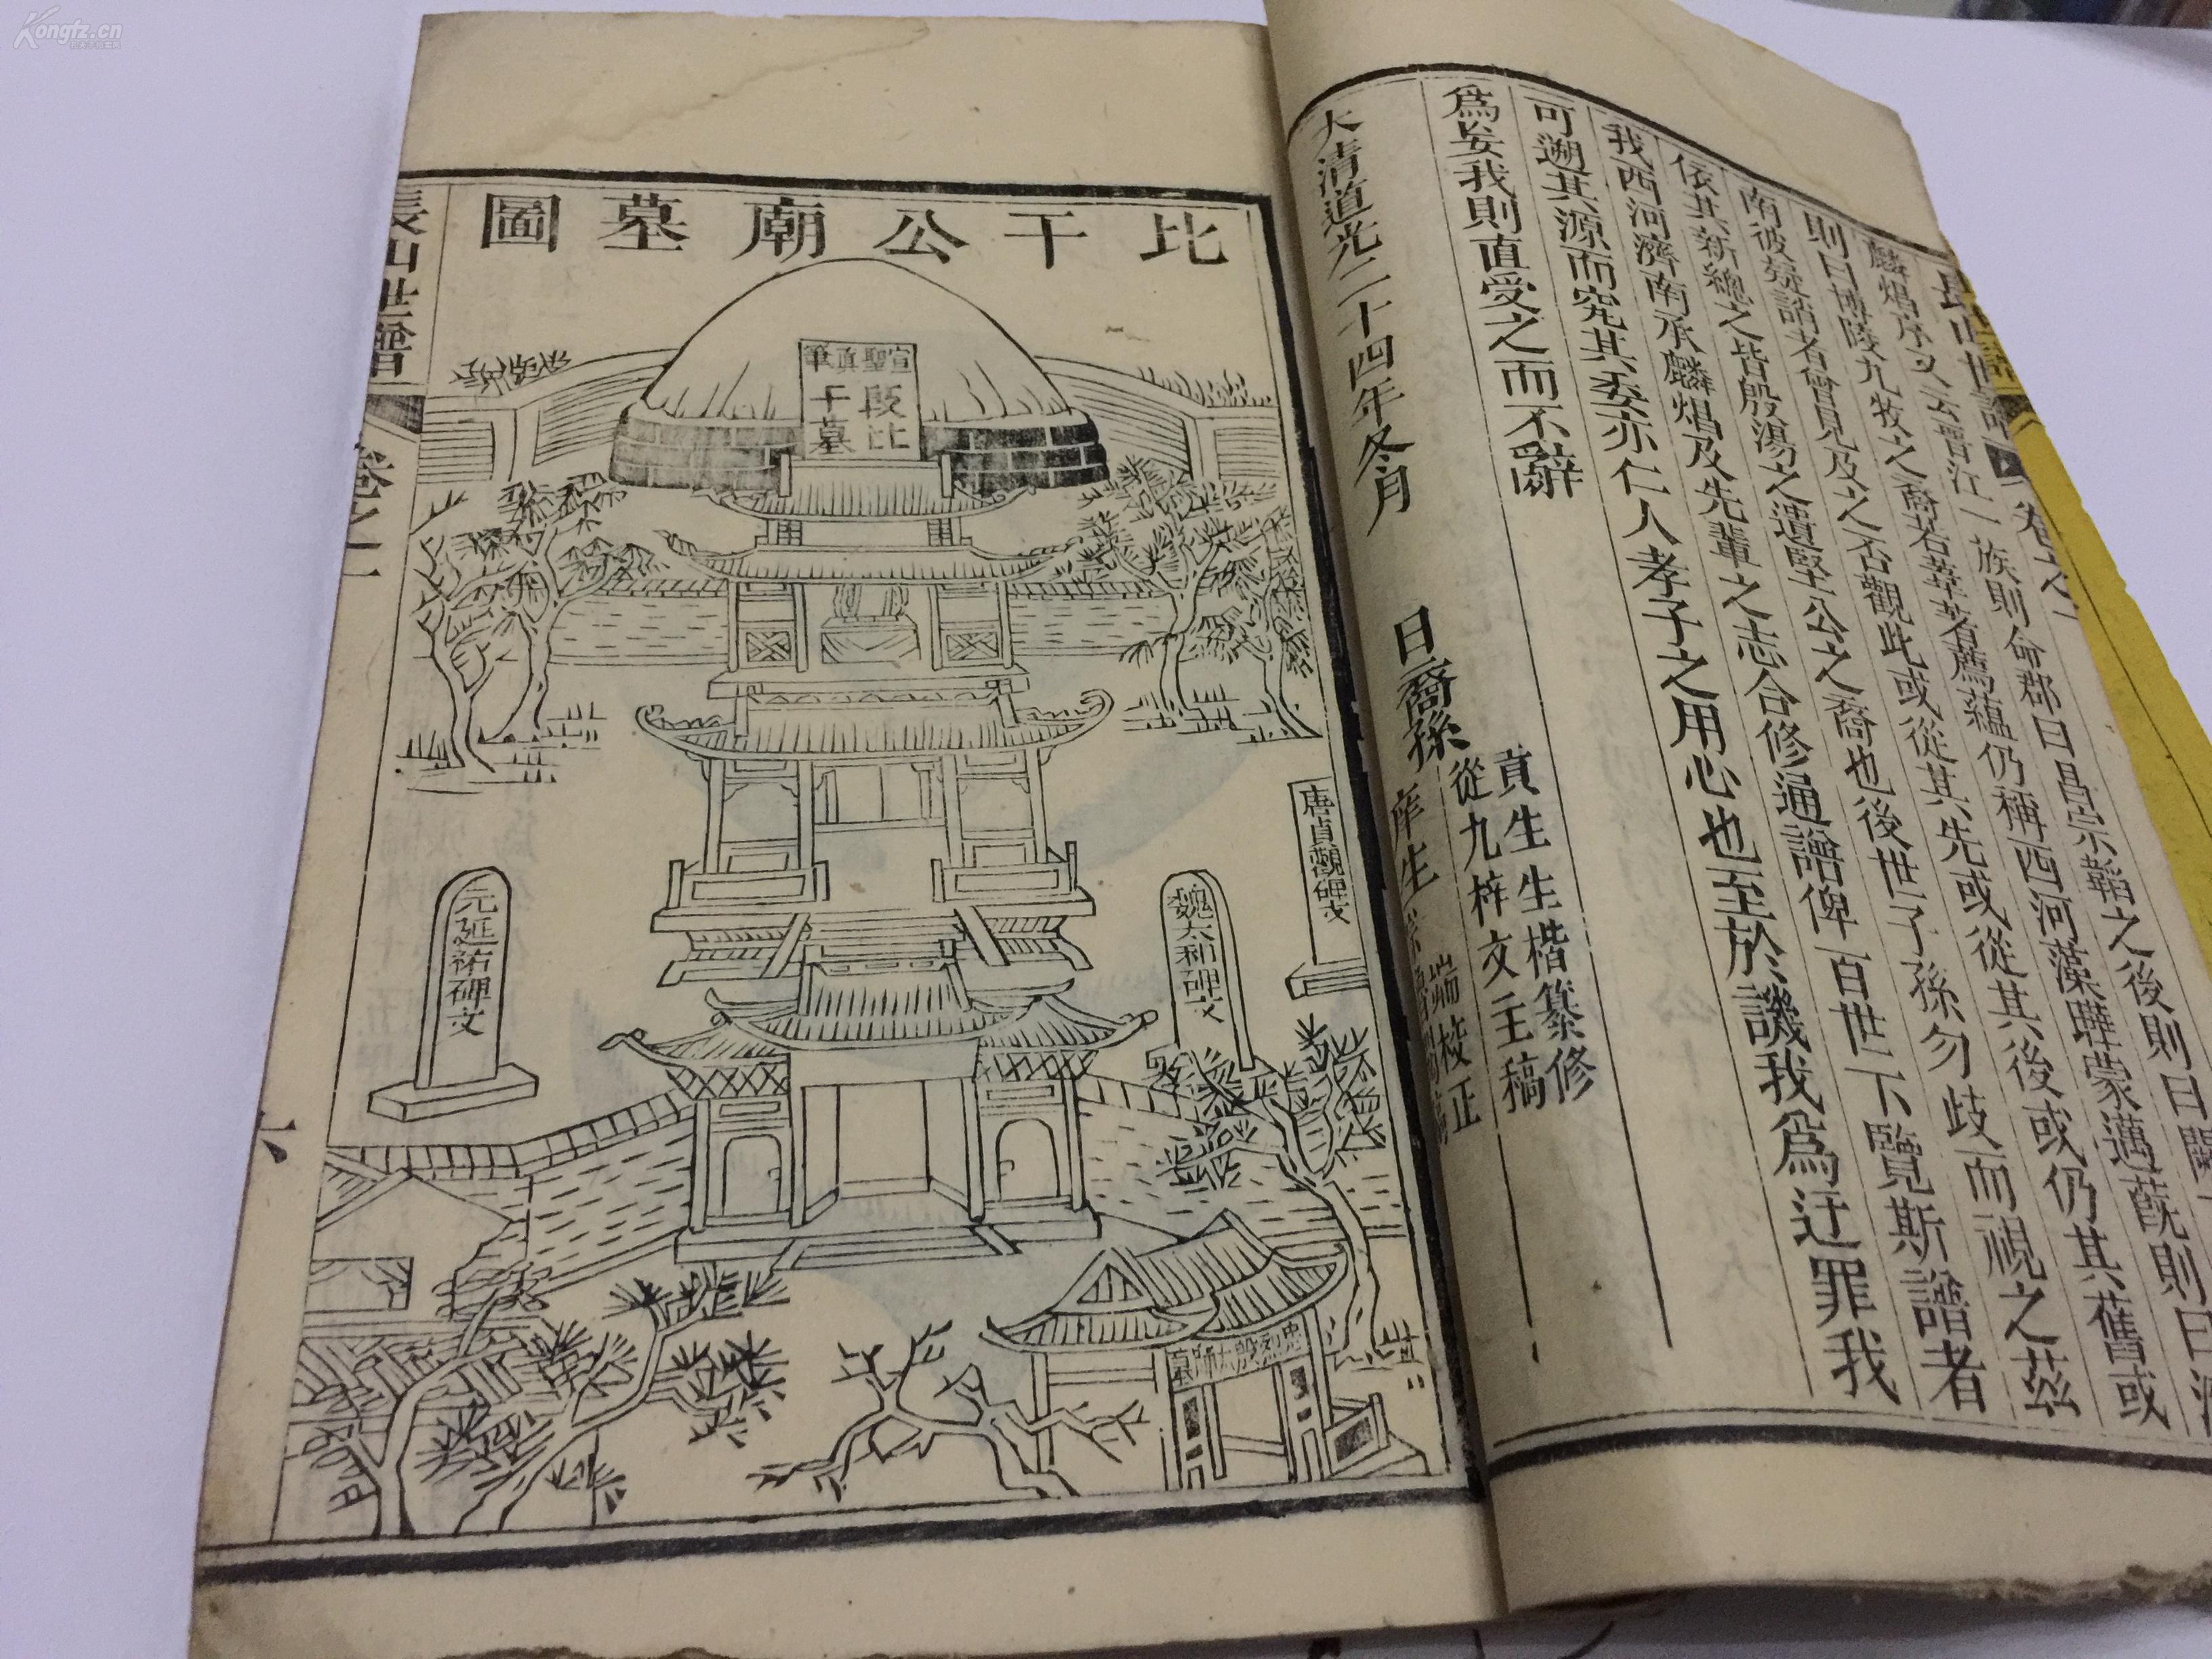 Kongfz.cn
長山世譜
卷之一
麟焻序又云晉江一族則命郡曰昌宗
則曰博陵九牧之裔若葦若薦蘊仍稱西河藻曄蒙邁蔇則曰
南彼疑誚者曾見及之否觀此或從其先或從其後或仍其舊或
依其新總之皆殷湯之遺堅公之裔也後世子孫勿歧而視之茲
我西河濟南承麟焻及先輩之志合修通譜俾百世下覽斯譜者
可遡其源而究其委亦仁人孝子之用心也至於譏我爲迂罪我
爲妄我則直受之而不辭
大清道光二十四年冬月
裔孫
貢生生楷纂修
從九梓文主稿
庠生
端校正
比干公廟墓圖
宣聖真筆
殷比干墓
唐貞觀碑文
魏太和碑文
元延祐碑文
忠烈殷太師墓
長山世譜
卷之一
六